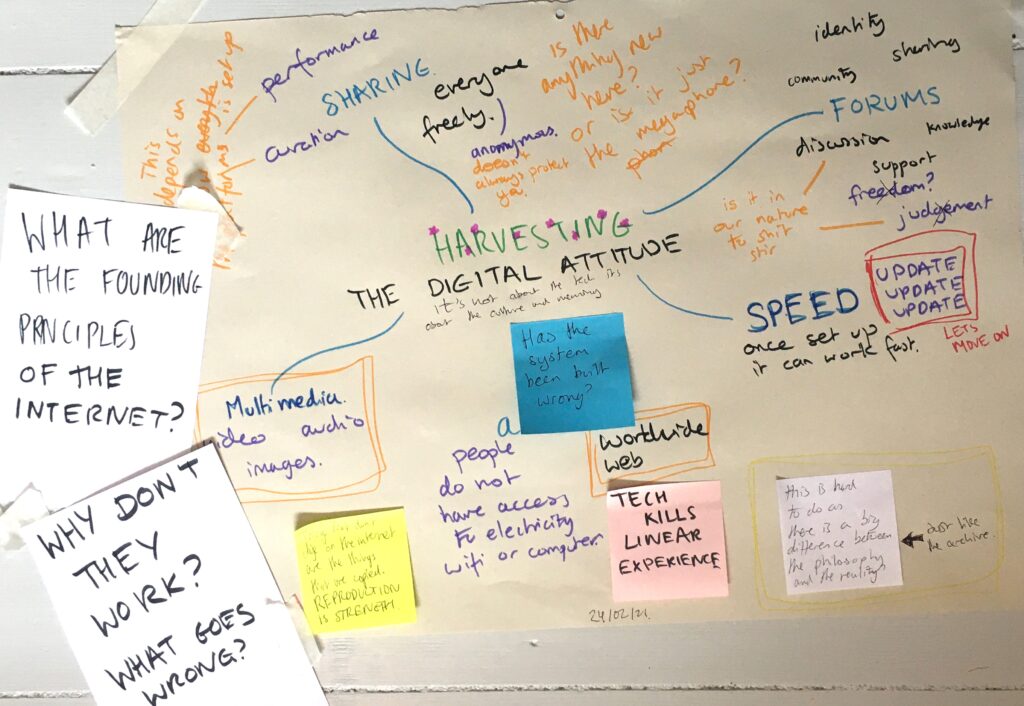 This
depends on
how everythin
forums is set up
performance
SHARING.
curation
everyone
freely.
anonymous.
doesn't
always protect
ya.
is there
anything new
here?
or is it just
the megaphone?
identity
sharing
community
FORUMS
discussion
knowledge
support
freedom?
judgement
is it in
our nature
to shit
stir
HARVESTING
THE DIGITAL ATTITUDE
it's not about the tech its
about the culture and meaning
SPEED
once set up?
it can work fast.
UPDATE
UPDATE
UPDATE
LETS
MOVE ON
WHAT ARE
THE FOUNDING
PRINCIPLES
OF THE
INTERNET?
Multimedia.
ideo audio
images.
Has the
system
been built
wrong?
a
people
do not
have access
to electricity
wifi or computer.
Worldwide
web
WHY DON'T
THEY
WORK?
WHAT GOES
WRONG?
on the internet
are the things
that are copied.
REPRODUCTION
IS STRENGTH
TECH
KILLS
LINEAR
EXPERIENCE
this is hard
to do as
there is a big
difference between
the philosophy
and the reality
just like
the archive.
24/02/21.